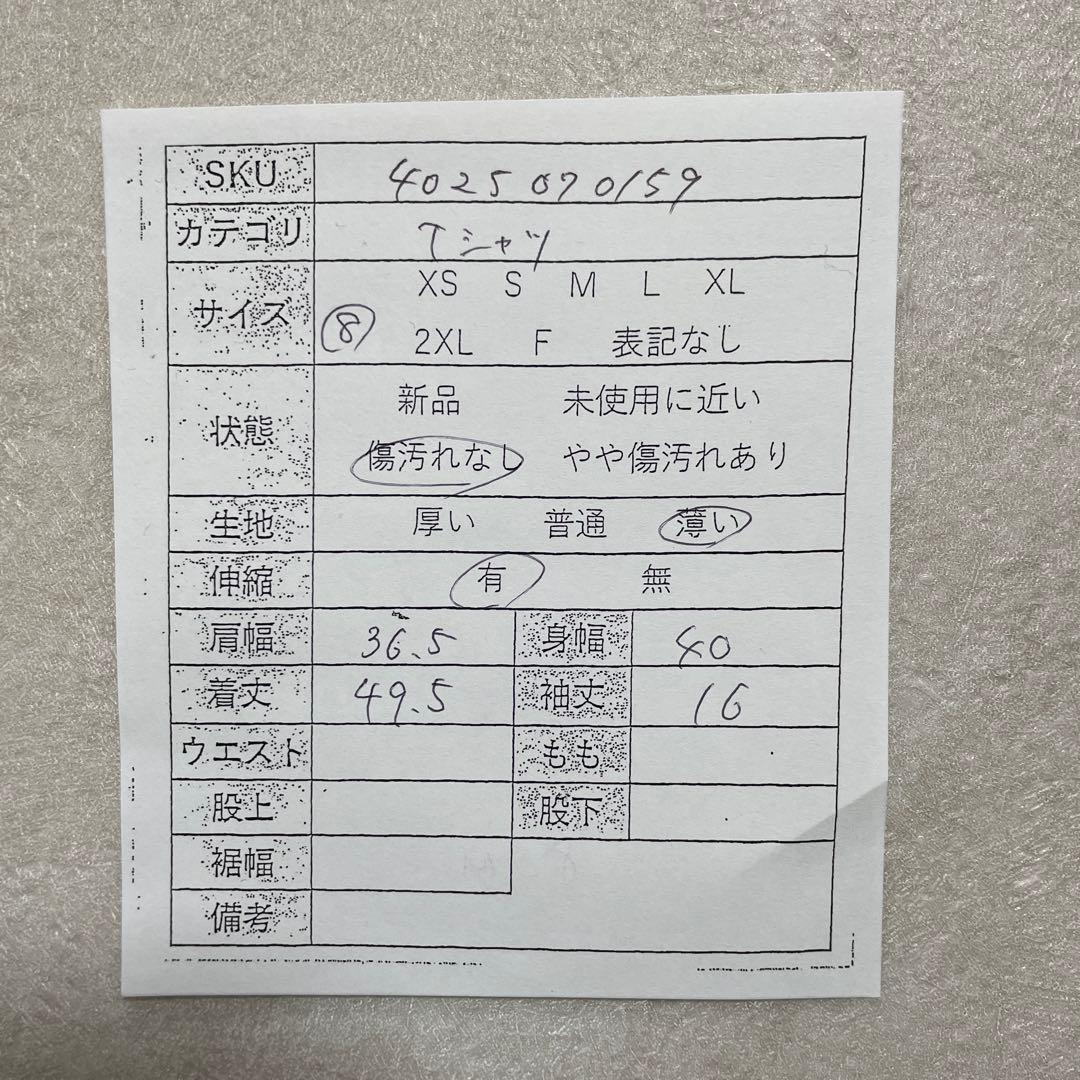 SKU 4025070159
カテゴリ Tシャツ
サイズ XS S M L XL
⑧ 2XL F 表記なし
状態 新品 未使用に近い
傷汚れなし やや傷汚れあり
生地 厚い 普通 薄い
伸縮 有 無
肩幅 36.5 身幅 40
着丈 49.5 袖丈 16
ウエスト もも
股上 股下
裾幅
備考